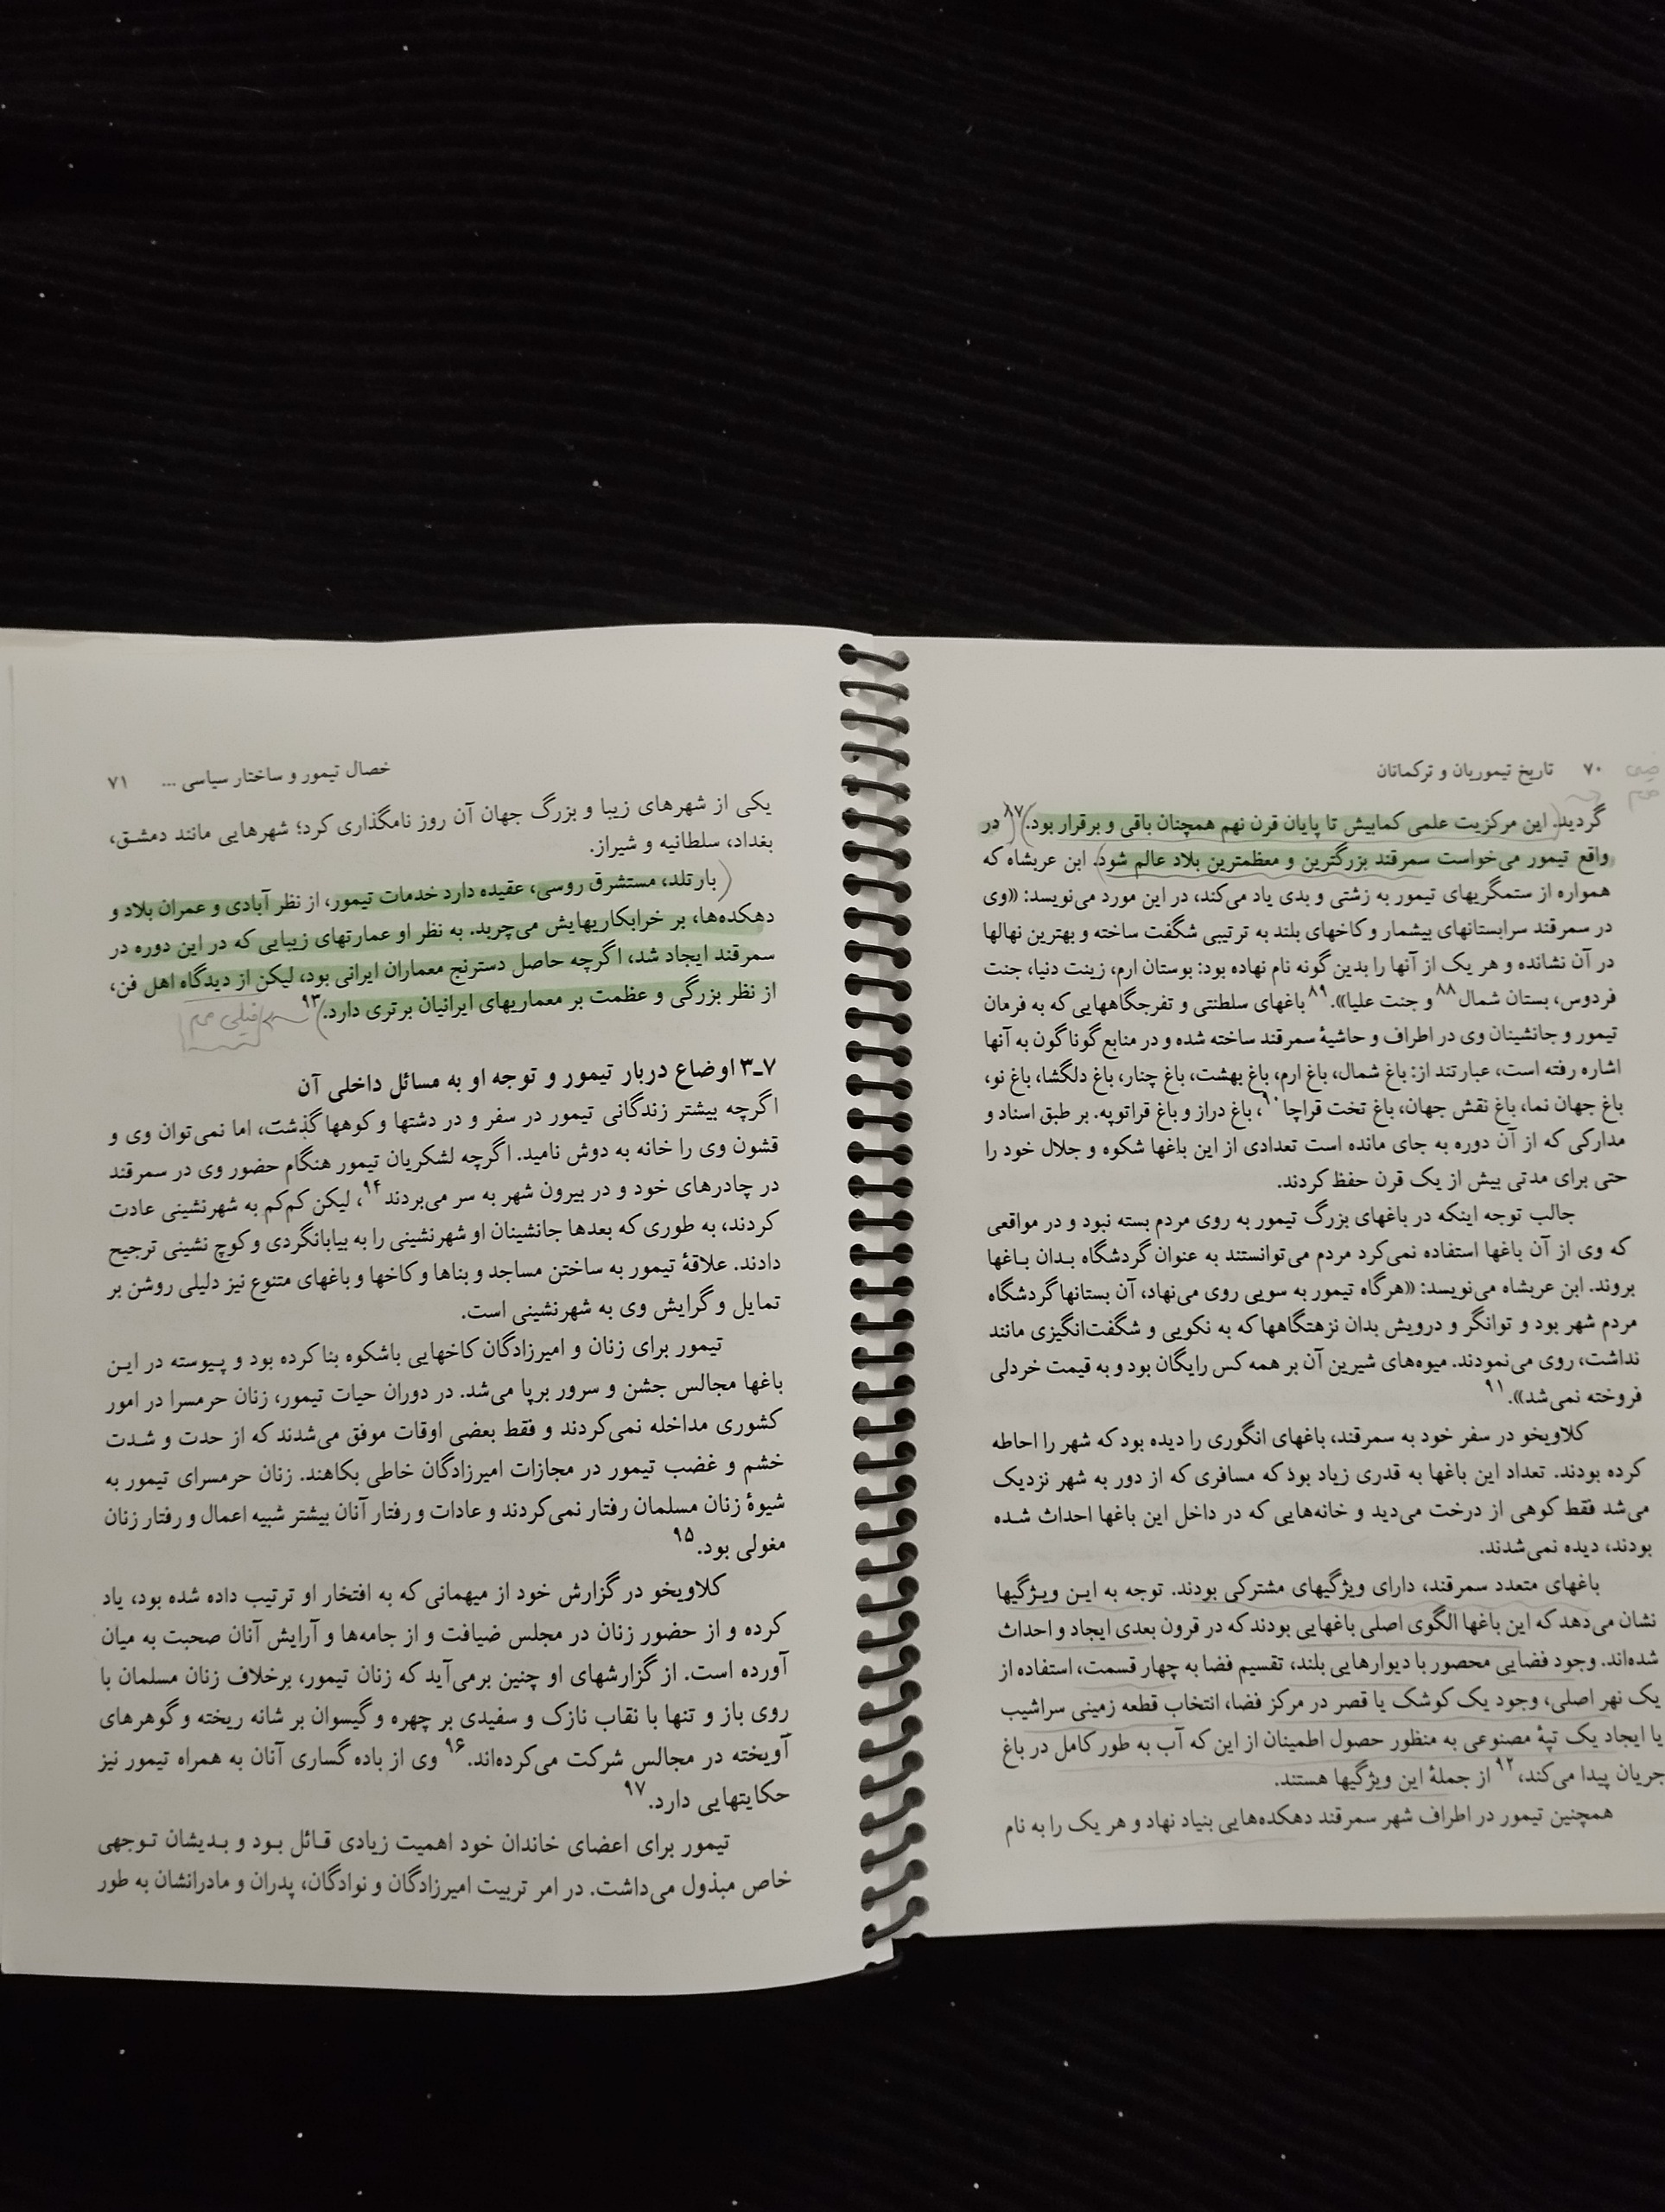 ۷۰ تاریخ تیموریان و ترکمانان
گردید. این مرکزیت علمی کمابیش تا پایان قرن نهم همچنان باقی و برقرار بود.۸۷ در
واقع تیمور می‌خواست سمرقند بزرگترین و معظمترین بلاد عالم شود. ابن عربشاه که
همواره از ستمگریهای تیمور به زشتی و بدی یاد می‌کند، در این مورد می‌نویسد: «وی
در سمرقند سرابستانهای بیشمار و کاخهای بلند به ترتیبی شگفت ساخته و بهترین نهالها
در آن نشانده و هر یک از آنها را بدین گونه نام نهاده بود: بوستان ارم، زینت دنیا، جنت
فردوس، بستان شمال۸۸ و جنت علیا».۸۹ باغهای سلطنتی و تفرجگاههایی که به فرمان
تیمور و جانشینان وی در اطراف و حاشیهٔ سمرقند ساخته شده و در منابع گوناگون به آنها
اشاره رفته است، عبارتند از: باغ شمال، باغ ارم، باغ بهشت، باغ چنار، باغ دلگشا، باغ نو،
باغ جهان نما، باغ نقش جهان، باغ تخت قراچا۹۰، باغ دراز و باغ قراتوپه. بر طبق اسناد و
مدارکی که از آن دوره به جای مانده است تعدادی از این باغها شکوه و جلال خود را
حتی برای مدتی بیش از یک قرن حفظ کردند.
جالب توجه اینکه در باغهای بزرگ تیمور به روی مردم بسته نبود و در مواقعی
که وی از آن باغها استفاده نمی‌کرد مردم می‌توانستند به عنوان گردشگاه بدان باغها
بروند. ابن عربشاه می‌نویسد: «هرگاه تیمور به سویی روی می‌نهاد، آن بستانها گردشگاه
مردم شهر بود و توانگر و درویش بدان نزهتگاهها که به نکویی و شگفت‌انگیزی مانند
نداشت، روی می‌نمودند. میوه‌های شیرین آن بر همه کس رایگان بود و به قیمت خردلی
فروخته نمی‌شد».۹۱
کلاویخو در سفر خود به سمرقند، باغهای انگوری را دیده بود که شهر را احاطه
کرده بودند. تعداد این باغها به قدری زیاد بود که مسافری که از دور به شهر نزدیک
می‌شد فقط کوهی از درخت می‌دید و خانه‌هایی که در داخل این باغها احداث شده
بودند، دیده نمی‌شدند.
باغهای متعدد سمرقند، دارای ویژگیهای مشترکی بودند. توجه به این ویژگیها
نشان می‌دهد که این باغها الگوی اصلی باغهایی بودند که در قرون بعدی ایجاد و احداث
شده‌اند. وجود فضایی محصور با دیوارهایی بلند، تقسیم فضا به چهار قسمت، استفاده از
یک نهر اصلی، وجود یک کوشک یا قصر در مرکز فضا، انتخاب قطعه زمینی سراشیب
یا ایجاد یک تپهٔ مصنوعی به منظور حصول اطمینان از این که آب به طور کامل در باغ
جریان پیدا می‌کند،۹۲ از جملهٔ این ویژگیها هستند.
همچنین تیمور در اطراف شهر سمرقند دهکده‌هایی بنیاد نهاد و هر یک را به نام
خصال تیمور و ساختار سیاسی ... ۷۱
یکی از شهرهای زیبا و بزرگ جهان آن روز نامگذاری کرد؛ شهرهایی مانند دمشق،
بغداد، سلطانیه و شیراز.
بارتلد، مستشرق روسی، عقیده دارد خدمات تیمور، از نظر آبادی و عمران بلاد و
دهکده‌ها، بر خرابکاریهایش می‌چربد. به نظر او عمارتهای زیبایی که در این دوره در
سمرقند ایجاد شد، اگرچه حاصل دسترنج معماران ایرانی بود، لیکن از دیدگاه اهل فن،
از نظر بزرگی و عظمت بر معماریهای ایرانیان برتری دارد.۹۳
خیلی مهم
۷ـ۳ اوضاع دربار تیمور و توجه او به مسائل داخلی آن
اگرچه بیشتر زندگانی تیمور در سفر و در دشتها و کوهها گذشت، اما نمی‌توان وی و
قشون وی را خانه به دوش نامید. اگرچه لشکریان تیمور هنگام حضور وی در سمرقند
در چادرهای خود و در بیرون شهر به سر می‌بردند۹۴، لیکن کم‌کم به شهرنشینی عادت
کردند، به طوری که بعدها جانشینان او شهرنشینی را به بیابانگردی و کوچ نشینی ترجیح
دادند. علاقهٔ تیمور به ساختن مساجد و بناها و کاخها و باغهای متنوع نیز دلیلی روشن بر
تمایل و گرایش وی به شهرنشینی است.
تیمور برای زنان و امیرزادگان کاخهایی باشکوه بنا کرده بود و پیوسته در این
باغها مجالس جشن و سرور برپا می‌شد. در دوران حیات تیمور، زنان حرمسرا در امور
کشوری مداخله نمی‌کردند و فقط بعضی اوقات موفق می‌شدند که از حدت و شدت
خشم و غضب تیمور در مجازات امیرزادگان خاطی بکاهند. زنان حرمسرای تیمور به
شیوهٔ زنان مسلمان رفتار نمی‌کردند و عادات و رفتار آنان بیشتر شبیه اعمال و رفتار زنان
مغولی بود.۹۵
کلاویخو در گزارش خود از میهمانی که به افتخار او ترتیب داده شده بود، یاد
کرده و از حضور زنان در مجلس ضیافت و از جامه‌ها و آرایش آنان صحبت به میان
آورده است. از گزارشهای او چنین برمی‌آید که زنان تیمور، برخلاف زنان مسلمان با
روی باز و تنها با نقاب نازک و سفیدی بر چهره و گیسوان بر شانه ریخته و گوهرهای
آویخته در مجالس شرکت می‌کرده‌اند.۹۶ وی از باده گساری آنان به همراه تیمور نیز
حکایتهایی دارد.۹۷
تیمور برای اعضای خاندان خود اهمیت زیادی قائل بود و بدیشان توجهی
خاص مبذول می‌داشت. در امر تربیت امیرزادگان و نوادگان، پدران و مادرانشان به طور